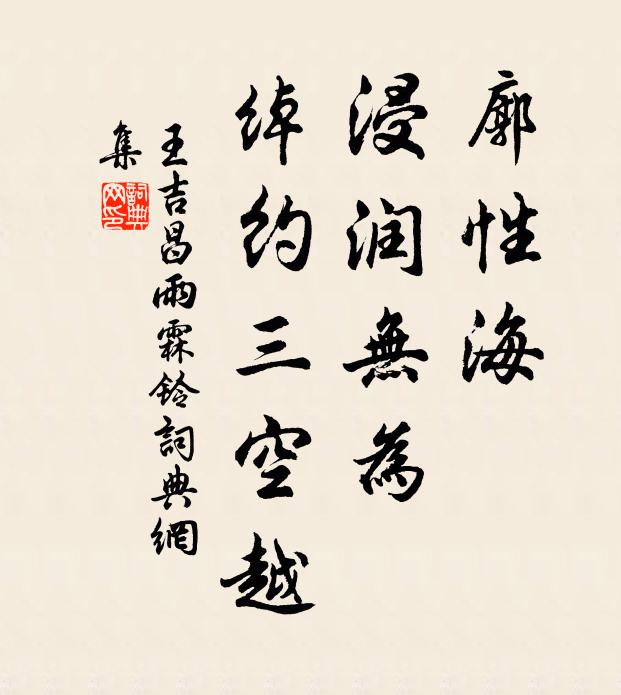 廓性海
浸润無為
绰约三空越
王吉昌雨霖铃詞典網
集
詞典
网印